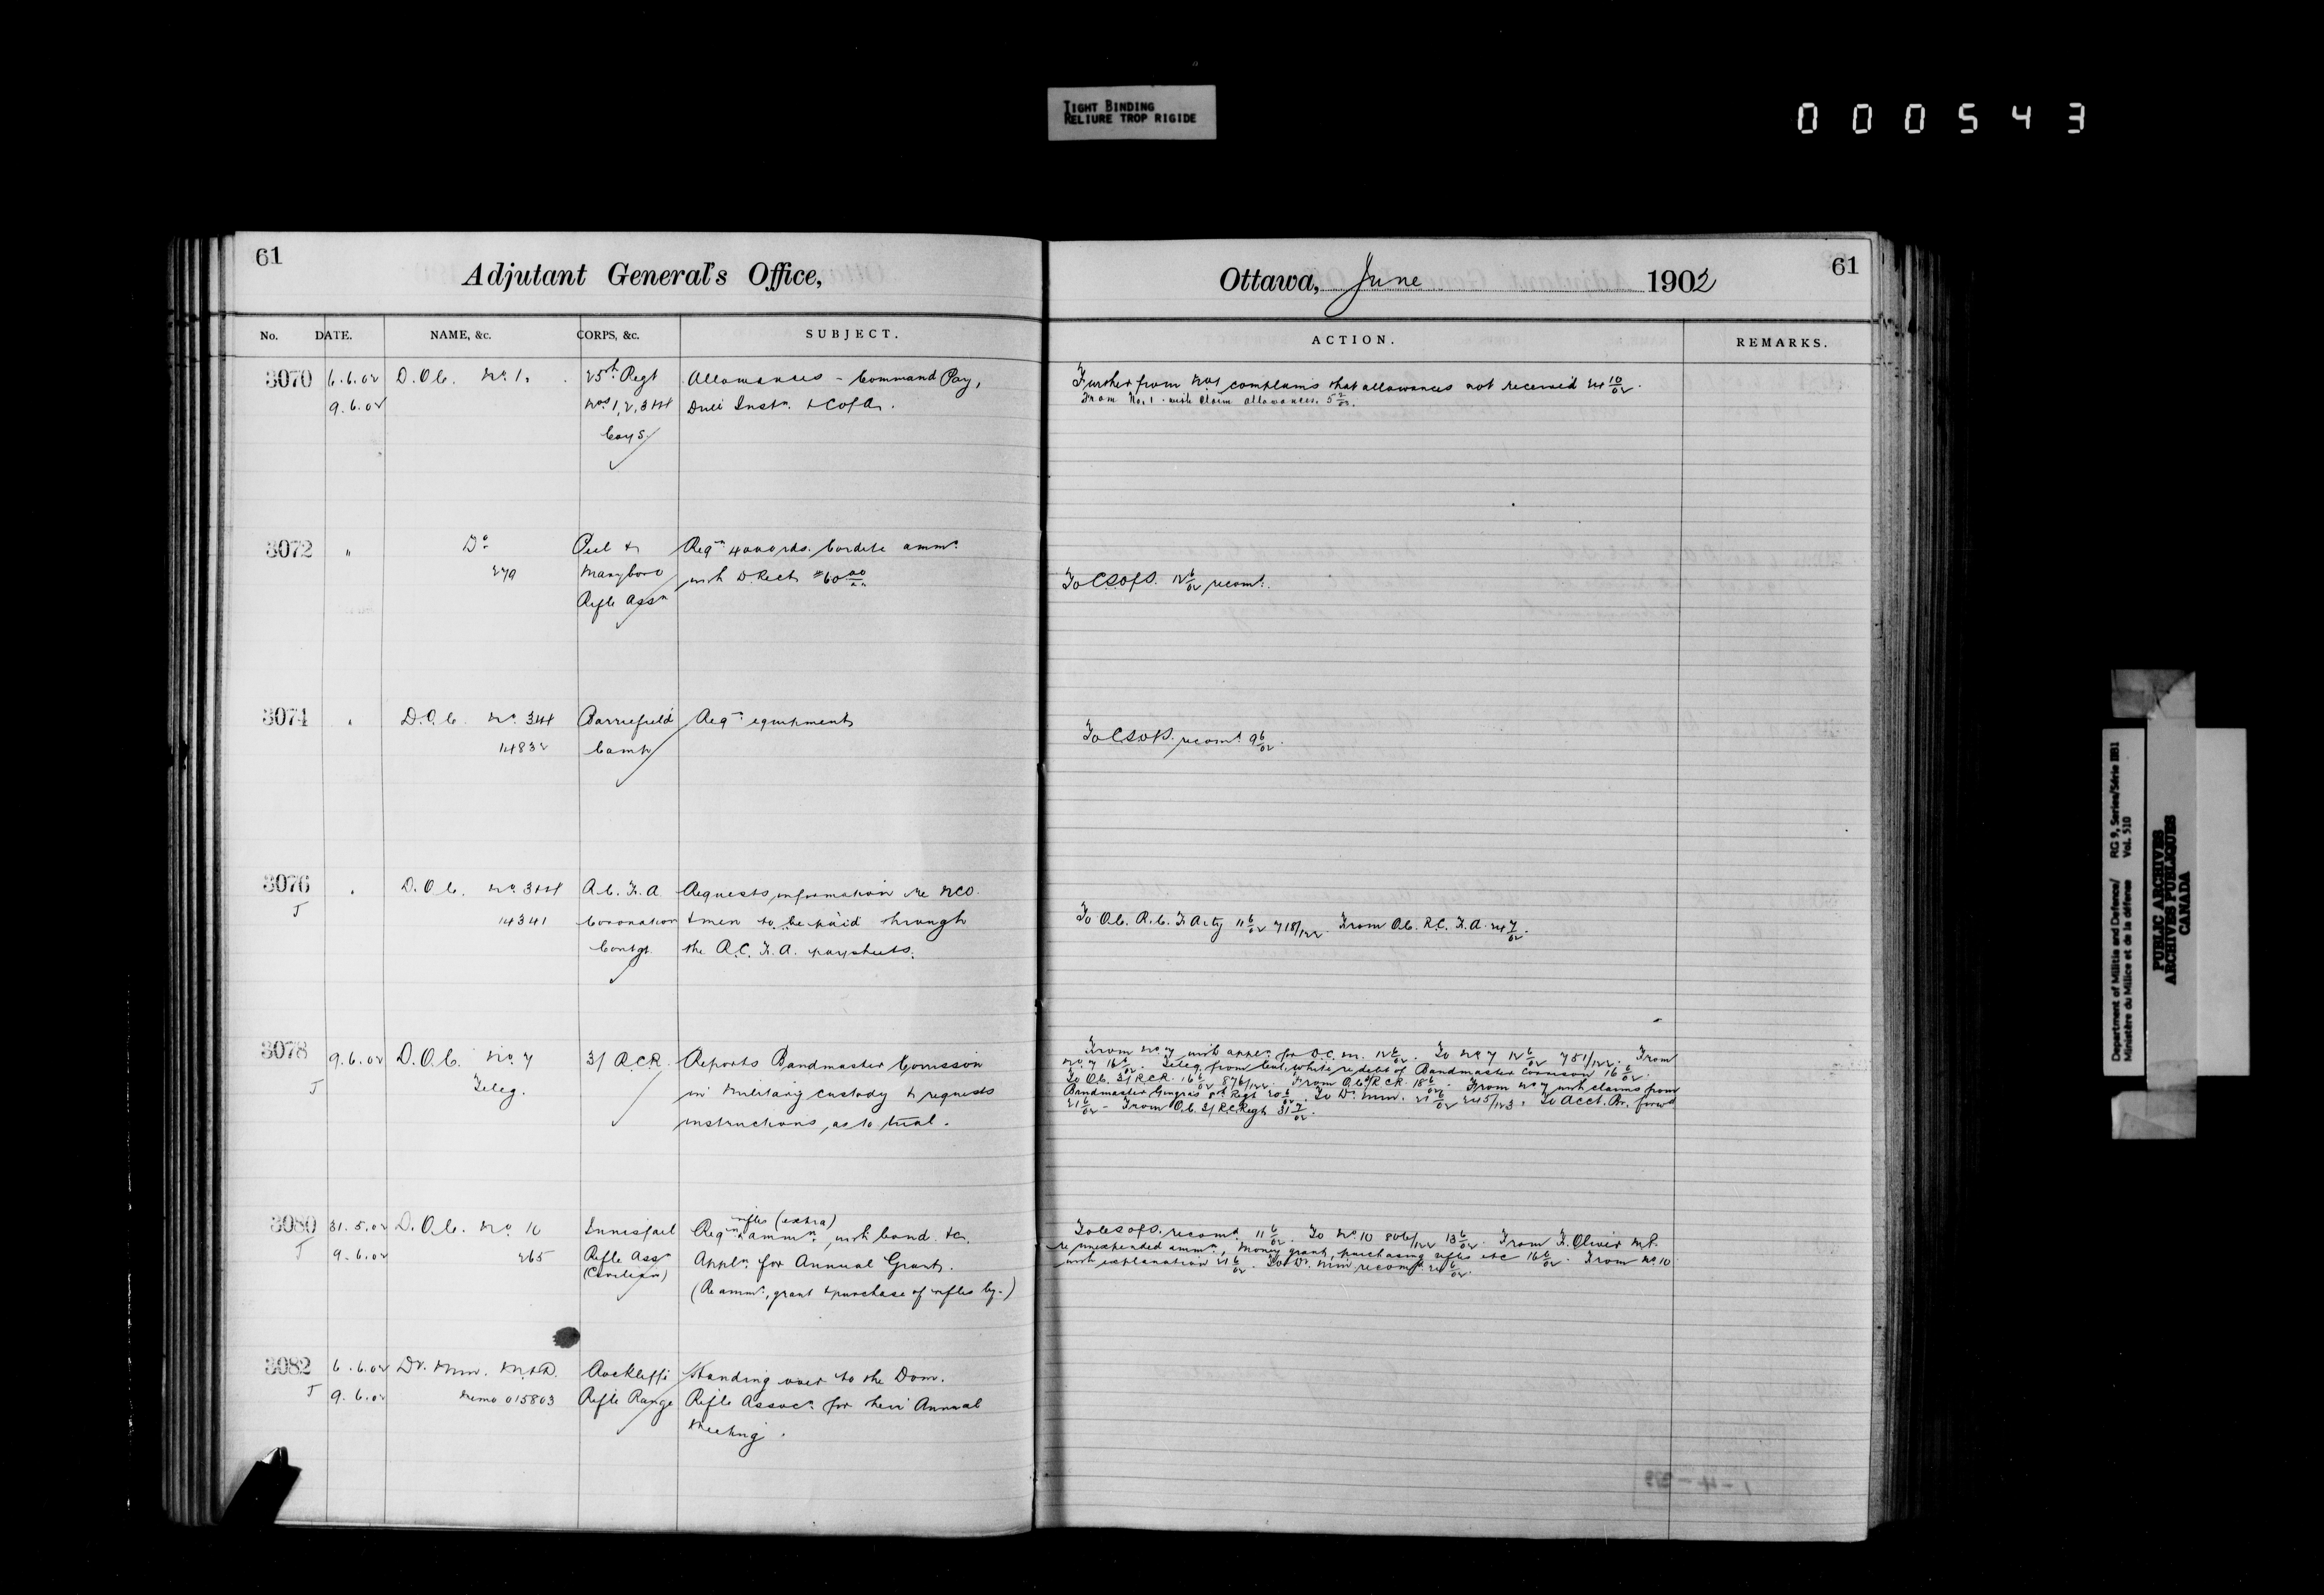 TIGHT BINDING
RELIURE TROP RIGIDE
000543
61
Adjutant General's Office,
No. DATE. NAME, &c. CORPS, &c. SUBJECT.
3070 6.6.02 D.O.C. No. 1. 25th Regt Allowances - Command Pay,
9.6.02 Nos 1, 2, 3 & 4 Drill Instn. & C of A.
Coys.
3072 " Do Peel & Reqn 4000 rds. Cordite ammn
279 Maryboro with D. Rect $60 00
Rifle Assn
3074 " D.O.C. No. 3 & 4 Barriefield Reqn equipment
14832 Camp
3076 " D.O.C. No. 3 & 4 R.C.F.A. Requests information re NCO
J 14341 Coronation & men to be paid through
Contgt. the R.C.F.A. paysheets.
3078 9.6.02 D.O.C. No. 7 3/ R.C.R. Reports Bandmaster Corrisson
J Teleg. in Military custody & requests
instructions as to trial.
rifles (extra)
3080 31.5.02 D.O.C. No. 10 Innisfail Reqn & ammn, with bond &c.
J 9.6.02 265 Rifle Assn Appln for Annual Grant.
(Civilian)
(Re ammn, grant & purchase of rifles by.)
3082 6.6.02 Dr. Min. M.&D. Rockliffe Handing over to the Dom.
J 9.6.02 Memo 015803 Rifle Range Rifle Assocn for their Annual
Meeting.
61
Ottawa, June 1902
ACTION. REMARKS.
Further from No 1 complains that allowances not received 24 10/02.
From No. 1 with claim allowances. 5 2/02.
To CSofS. 12 6/02 recomd.
To CSofS. recomd 9 6/02.
To OC. R.C.F.A. 11 6/02 718/122. From OC. R.C.F.A. 24 7/02.
From No 7 with appln for D.C.M. 12 6/02. To No 7 12 6/02 751/122. From
No 7 16 6/02. Teleg. from white re debt of Bandmaster Corrisson 16 6/02.
To OC. 3/ RCR. 16 6/02 876/122. From OC 3/ RCR. 18 6/02. From No 7 with claims from
Bandmaster Gingras 8th Regt 20 6/02. To Dr. Min. 21 6/02 245/123. To Acct. Br. forwd
21 6/02 - From OC. 3/ R.C. Regt 31 7/02.
To CSofS. recomd 11 6/02. To No 10 806/122 13 6/02. From F. Oliver M.P.
re unexpended ammn, money grant, purchasing rifles etc 16 6/02. From No 10
with explanation 21 6/02. To Dr. Min recomd 24 6/02.
Department of Militia and Defence/ RG 9, Series/Série IIB1
Ministère du Milice et de la défense Vol. 510
PUBLIC ARCHIVES
ARCHIVES PUBLIQUES
CANADA